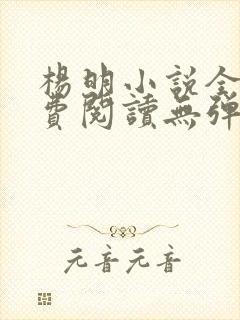 楊明小說全
費閱讀無彈
元音元音